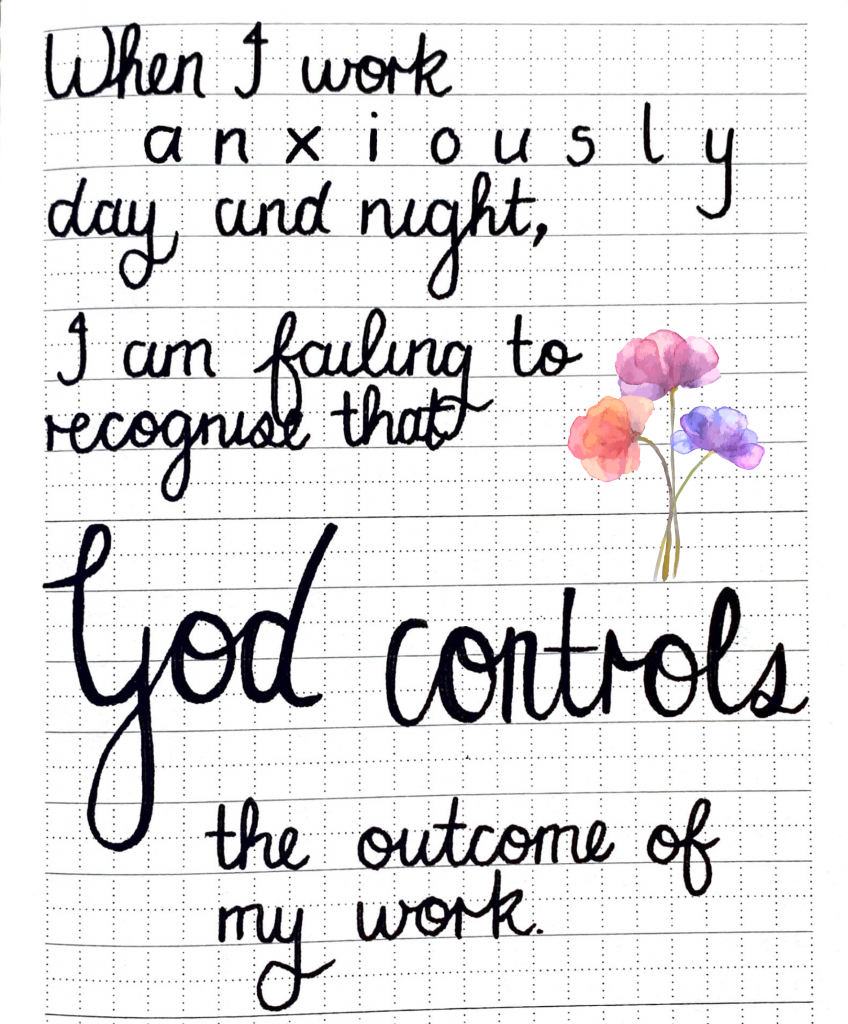 When I work
anxiously
day and night,
I am failing to
recognise that
God controls
the outcome of
my work.